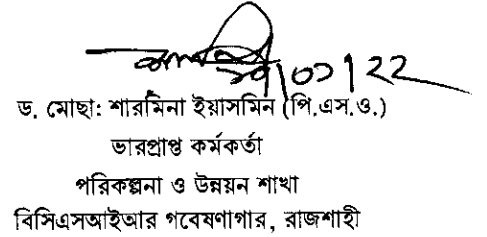 ড. মোছা: শারমিনা ইয়াসমিন (পি.এস.ও.)
ভারপ্রাপ্ত কর্মকর্তা
পরিকল্পনা ও উন্নয়ন শাখা
বিসিএসআইআর গবেষণাগার, রাজশাহী